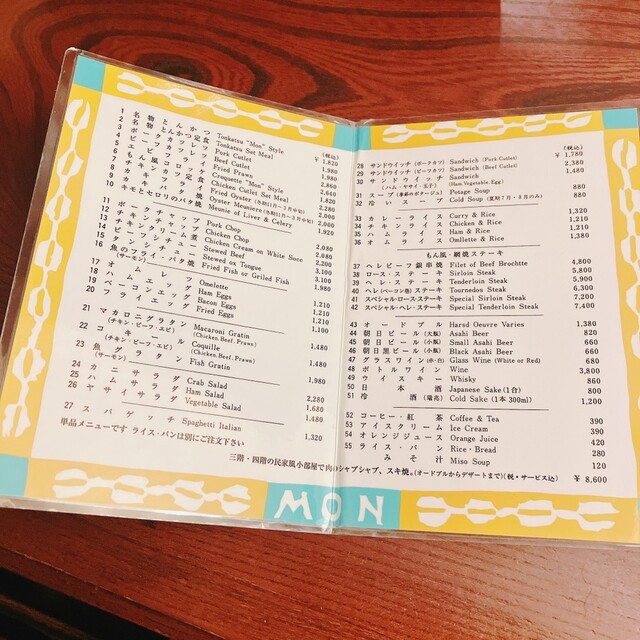 (税込)
1 名物とんかつ Tonkatsu "Mon" Style ¥ 1,820
2 名物とんかつ定食 Tonkatsu Set Meal
3 ポークカツレツ Pork Cutlet
4 ビーフカツレツ Beef Cutlet
5 エビフライ Fried Prawn
6 もん風コロッケ Croquette "Mon" Style
7 チキンカツ定食 Chicken Cutlet Set Meal
8 カキフライ Fried Oyster
9 カキバタ焼 Oyster Meuniere
10 キモとセロリのバタ焼 Meunie of Liver & Celery 1,920
11 ポークチャップ Pork Chop 2,080
12 チキンチャップ Chicken Chop 2,080
13 チキンクリーム煮 Chicken Cream on White Soce
14 ビーフシチュー Stewed Beef
15 タンシチュー Stewed ox Tongue
16 魚のフライ・バタ焼 Fried Fish or Griled Fish
(サーモン)
17 オムレツ Omelette
18 ハムエッグ Ham Eggs 1,210
19 ベーコンエッグ Bacon Eggs 1,210
20 フライエッグ Fried Eggs 1,100
21 マカロニグラタン Macaroni Gratin 1,480
(チキン・ビーフ・エビ) (Chicken.Beef.Prawn)
22 コキール Coquille 1,480
(チキン・ビーフ・エビ) (Chicken.Beef.Prawn)
23 魚グラタン Fish Gratin 1,480
(サーモン)
24 カニサラダ Crab Salad 1,980
25 ハムサラダ Ham Salad 2,280
26 ヤサイサラダ Vegetable Salad 1,680
27 スパゲッチ Spaghetti Italian 1,320
単品メニューです ライス・パンは別にご注文下さい
(税込)
28 サンドウイッチ (ポークカツ) Sandwich (Pork Cutlet) ¥ 1,780
29 サンドウイッチ (ビーフカツ) Sandwich (Beef Cutlet) 2,380
30 サンドウイッチ Sandwich 1,480
(ハム・ヤサイ・玉子) (Ham.Vegetable.Egg)
31 スープ (季節のポタージュ) Potage Soup 880
32 冷いスープ Cold Soup (夏期7月・8月のみ) 880
33 カレーライス Curry & Rice 1,320
34 チキンライス Chicken & Rice 1,210
35 ハムライス Ham & Rice 1,210
36 オムライス Omllette & Rice 1,380
もん風・網焼ステーキ
37 ヘレビーフ銀串焼 Filet of Beef Brochtte 4,800
38 ロース・ステーキ Sirloin Steak 5,800
39 ヘレ・ステーキ Tenderloin Steak 5,900
40 ヘレ(ベーコン巻)ステーキ Tournedos Steak 6,300
41 スペシャル・ロース・ステーキ Special Sirloin Steak 7,200
42 スペシャル・ヘレ・ステーキ Special Tenderloin Steak 7,400
43 オードブル Harsd Oeuvre Varies 1,380
44 朝日ビール (大瓶) Asahi Beer 820
45 朝日ビール (小瓶) Small Asahi Beer 660
46 朝日黒ビール (小瓶) Black Asahi Beer 660
47 グラスワイン (赤・白) Glass Wine (White or Red) 680
48 ボトルワイン Wine 3,800
49 ウイスキー Whisky 860
50 日本酒 Japanese Sake (1合) 800
51 冷酒 (瑞兆) Cold Sake (1本 300ml) 1,200
52 コーヒー・紅茶 Coffee & Tea 390
53 アイスクリーム Ice Cream 390
54 オレンジジュース Orange Juice 420
55 ライス・パン Rice・Bread 280
みそ汁 Miso Soup 120
三階・四階の民家風小部屋で肉のシャブシャブ、スキ焼。(オードブルからデザートまで)(税・サービス込) ¥ 8,600
MON